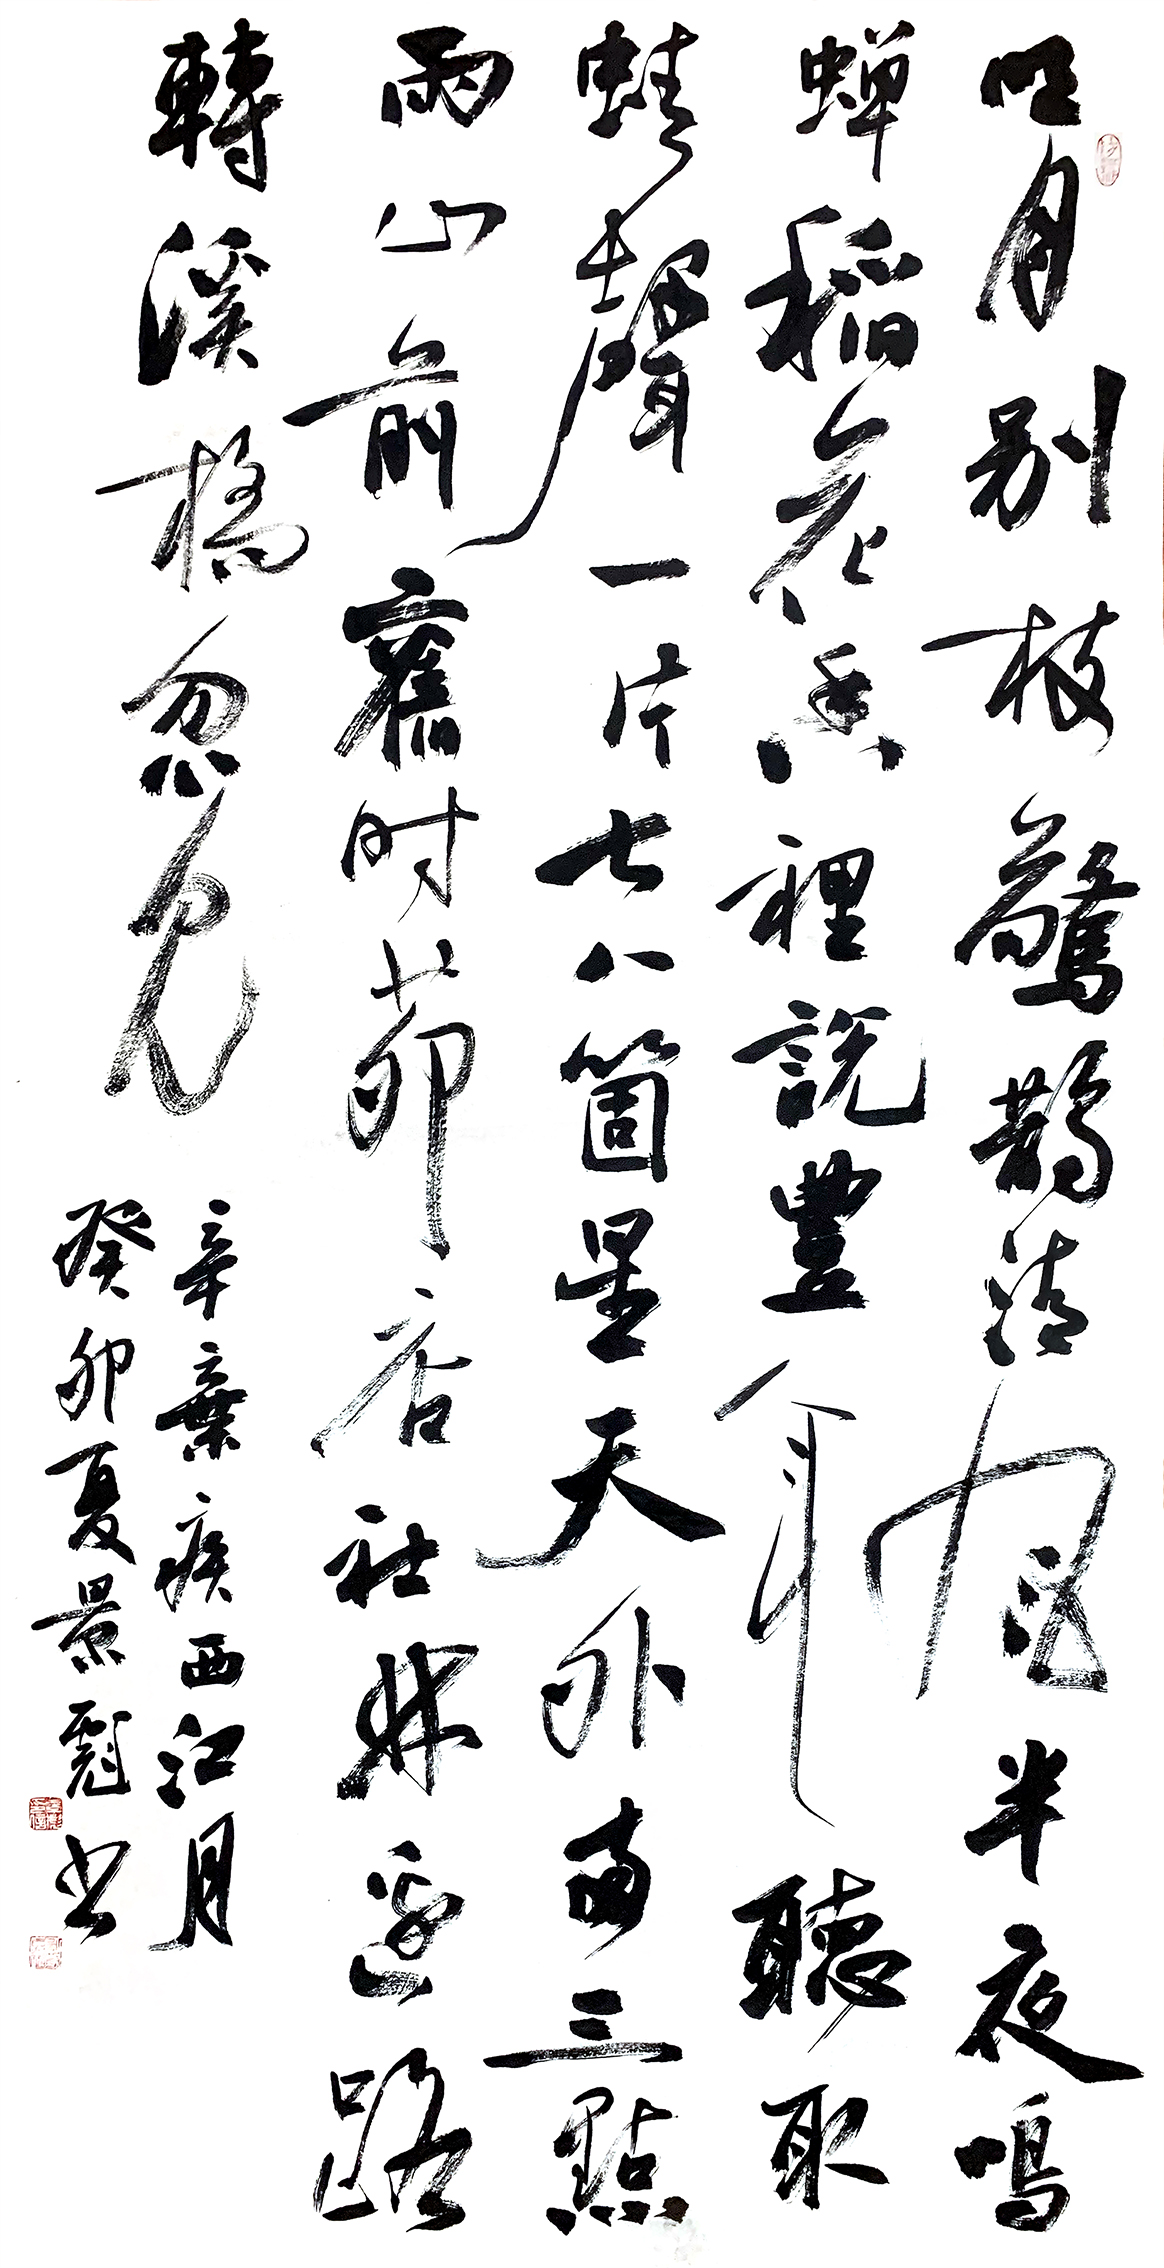 明月别枝驚鹊清風半夜鳴
蝉稻花香裡説豐年聽取
蛙聲一片七八箇星天外兩三點
雨山前舊时茆店社林邊路
轉溪橋忽見
辛棄疾西江月
癸卯夏景彪书